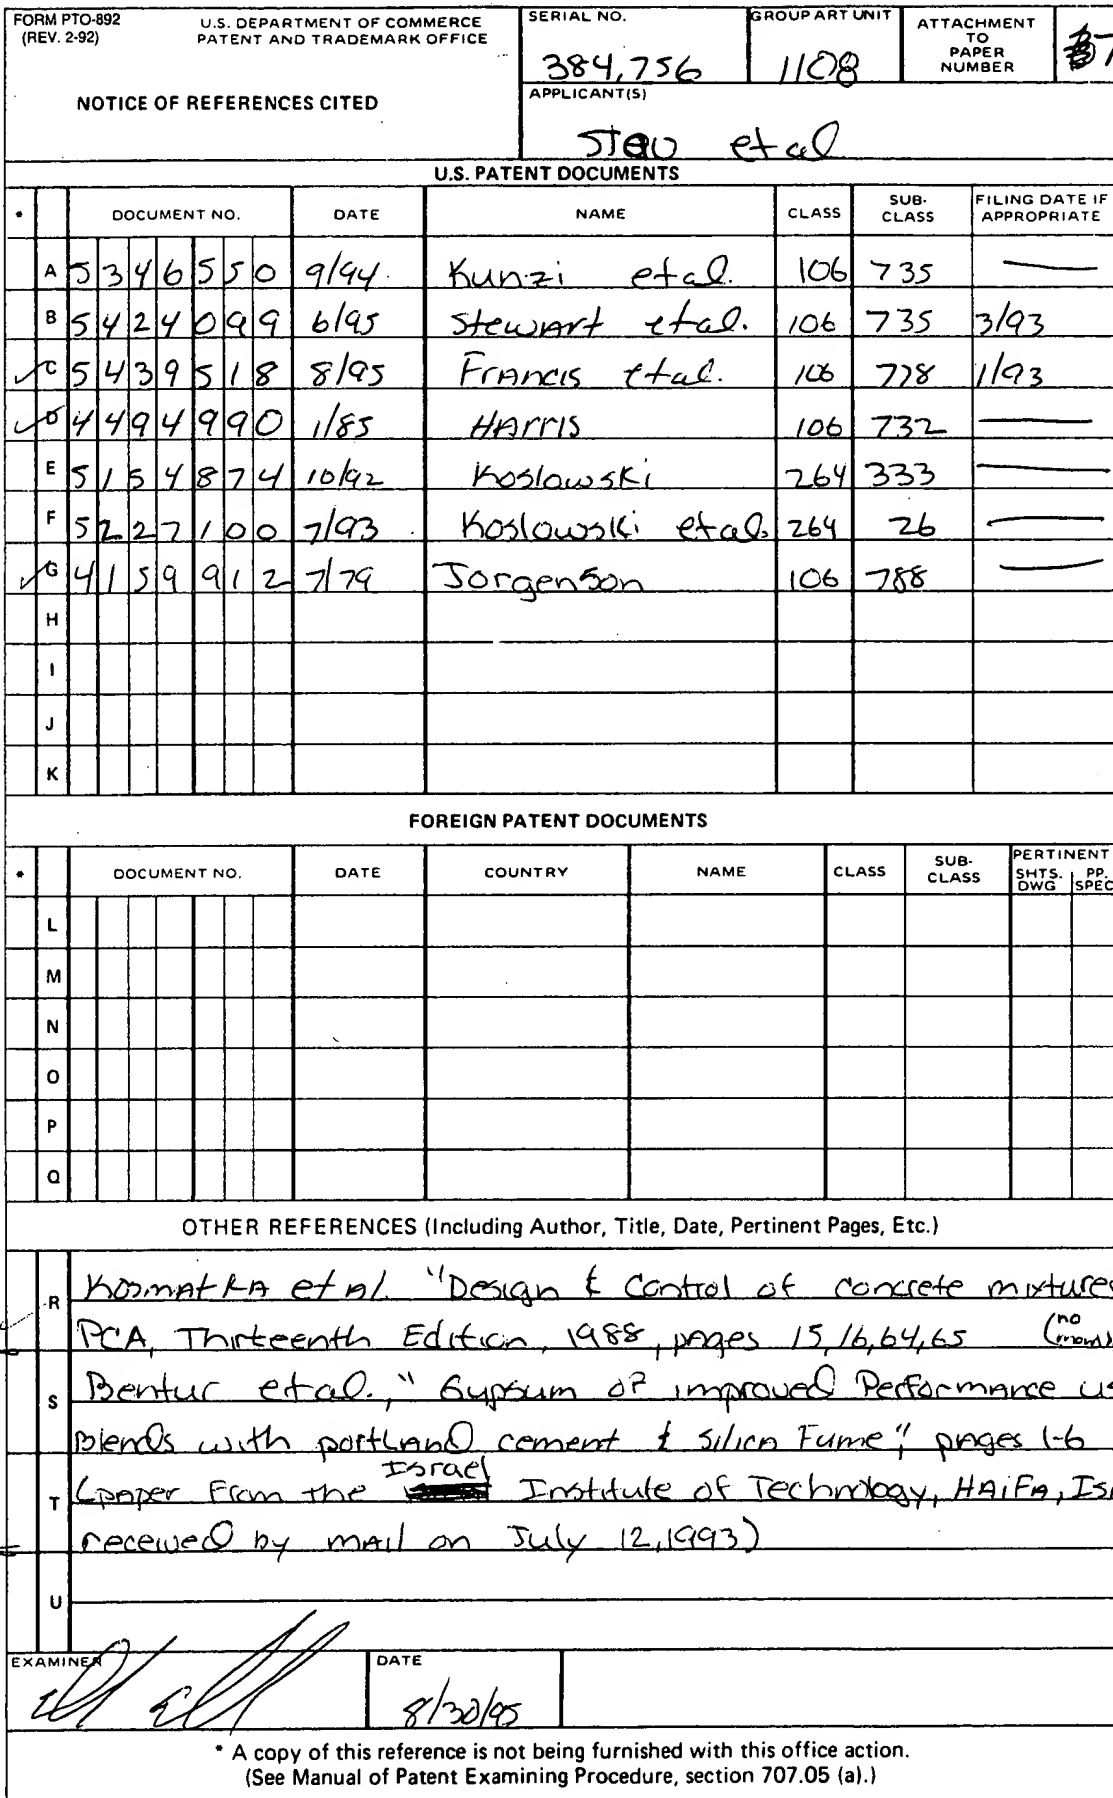 FORM PTO-892 U.S. DEPARTMENT OF COMMERCE
(REV. 2-92) PATENT AND TRADEMARK OFFICE
NOTICE OF REFERENCES CITED
SERIAL NO. 384,756
GROUP ART UNIT 1108
ATTACHMENT TO PAPER NUMBER 7
APPLICANT(S)
Stav et al
U.S. PATENT DOCUMENTS
* DOCUMENT NO. DATE NAME CLASS SUB-CLASS FILING DATE IF APPROPRIATE
A 5346550 9/94 Kunzi et al. 106 735 —
B 5424099 6/95 Stewart et al. 106 735 3/93
✓ C 5439518 8/95 Francis et al. 106 778 1/93
✓ D 4494990 1/85 Harris 106 732 —
E 5154874 10/92 Koslowski 264 333 —
F 5227100 7/93 Koslowski et al. 264 26 —
✓ G 4159912 7/79 Jorgenson 106 788 —
H
I
J
K
FOREIGN PATENT DOCUMENTS
* DOCUMENT NO. DATE COUNTRY NAME CLASS SUB-CLASS PERTINENT SHTS. DWG PP. SPEC
L
M
N
O
P
Q
OTHER REFERENCES (Including Author, Title, Date, Pertinent Pages, Etc.)
R Kosmatka et al. "Design & Control of concrete mixtures
PCA, Thirteenth Edition, 1988, pages 15,16,64,65 (no month)
S Bentur et al., "Gypsum of improved Performance us
Blends with portland cement & Silica Fume", pages 1-6
T (paper from the Israel Institute of Technology, Haifa, Is
received by mail on July 12, 1993)
U
EXAMINER
DATE
8/30/95
* A copy of this reference is not being furnished with this office action.
(See Manual of Patent Examining Procedure, section 707.05 (a).)